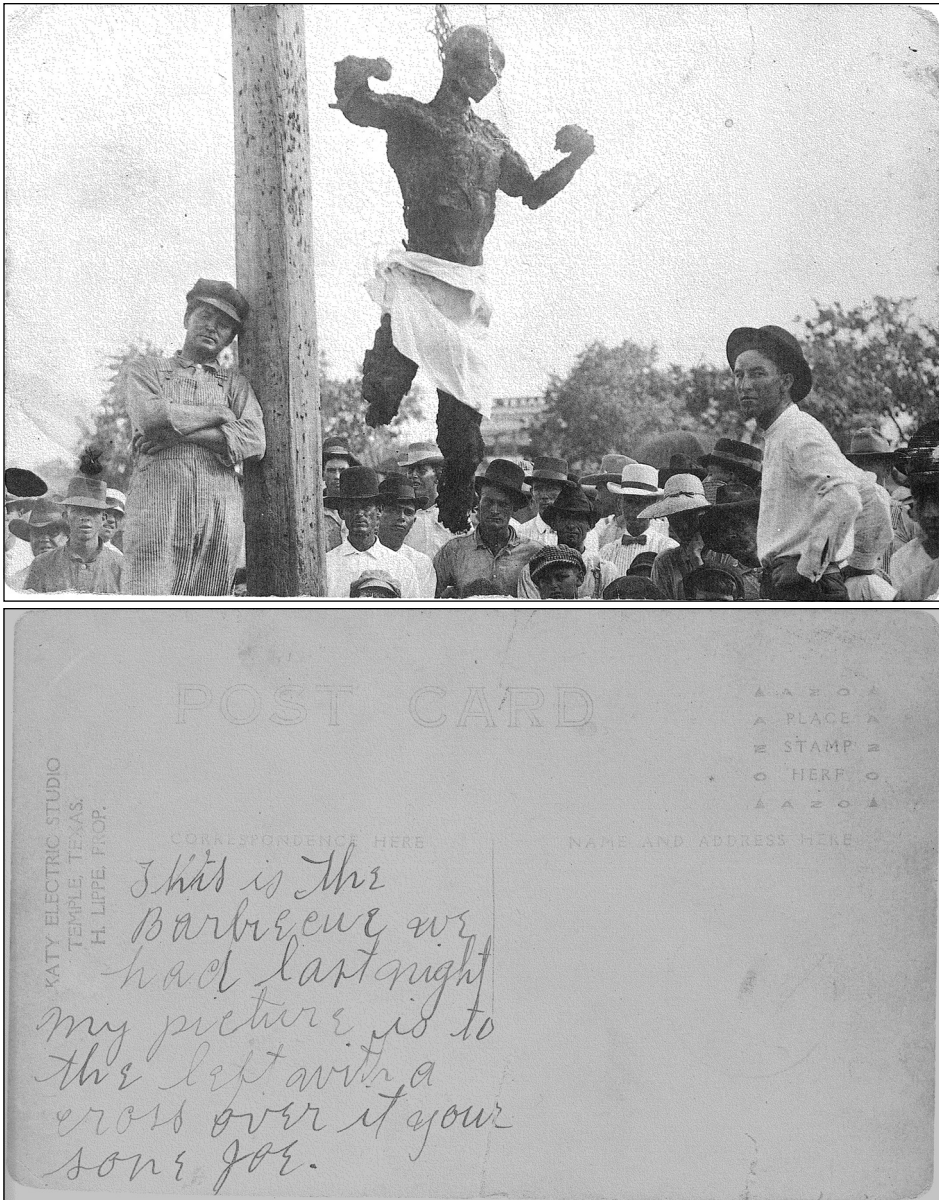 POST CARD
AZO
PLACE
STAMP
HERE
AZO
KATY ELECTRIC STUDIO
TEMPLE, TEXAS.
H. LIPPE, PROP.
CORRESPONDENCE HERE
NAME AND ADDRESS HERE
This is the
Barbecue we
had last night
My picture is to
the left with a
cross over it your
sone Joe.